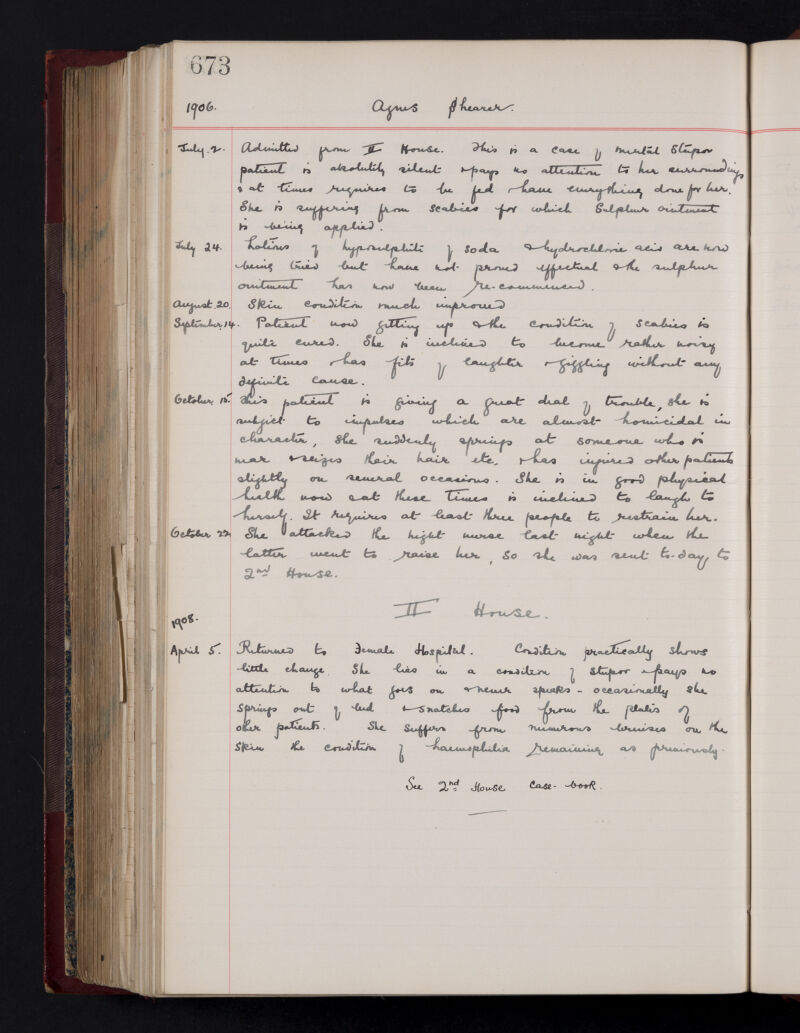 673
1906. Agnes Shearer.
July. 2. Admitted from II House. This is a case of mental Stupor
patient is absolutely silent & pays no attention to her surroundings
& at times requires to be fed & have everything done for her.
She is suffering from scabies for which Sulphur ointment
is being applied.
July 24. Lotions of hyposulphite of soda & hydrochloric acid are now
being tried but have not proved effectual & the sulphur
ointment has now been re-commenced.
August 20. Skin condition much improved
September 14. Patient now getting up & the condition of scabies is
quite cured. She is inclined to become rather noisy
at times & has fits of laughter & giggling without any
definite cause.
October 15. This patient is giving a great deal of trouble, she is
subject to impulses which are almost homicidal in
character, she suddenly springs at someone who is
near & seizes their hair etc. & has injured other patients
slightly on several occasions. She is in good physical
health now & at these times is inclined to laugh to
herself. It requires at least three people to restrain her.
October 22. She attacked the night nurse last night when the
latter went to raise her, so she was sent to-day to
2nd House.
II House.
1908.
April 5. Returned to Female Hospital. Condition practically shows
little change. She lies in a condition of stupor & pays no
attention to what goes on & never speaks - occasionally she
springs out of bed & snatches food from the plates of
other patients. She suffers from numerous bruises on the
skin the condition of haemophilia remaining as previously.
See 2nd House Case-book.